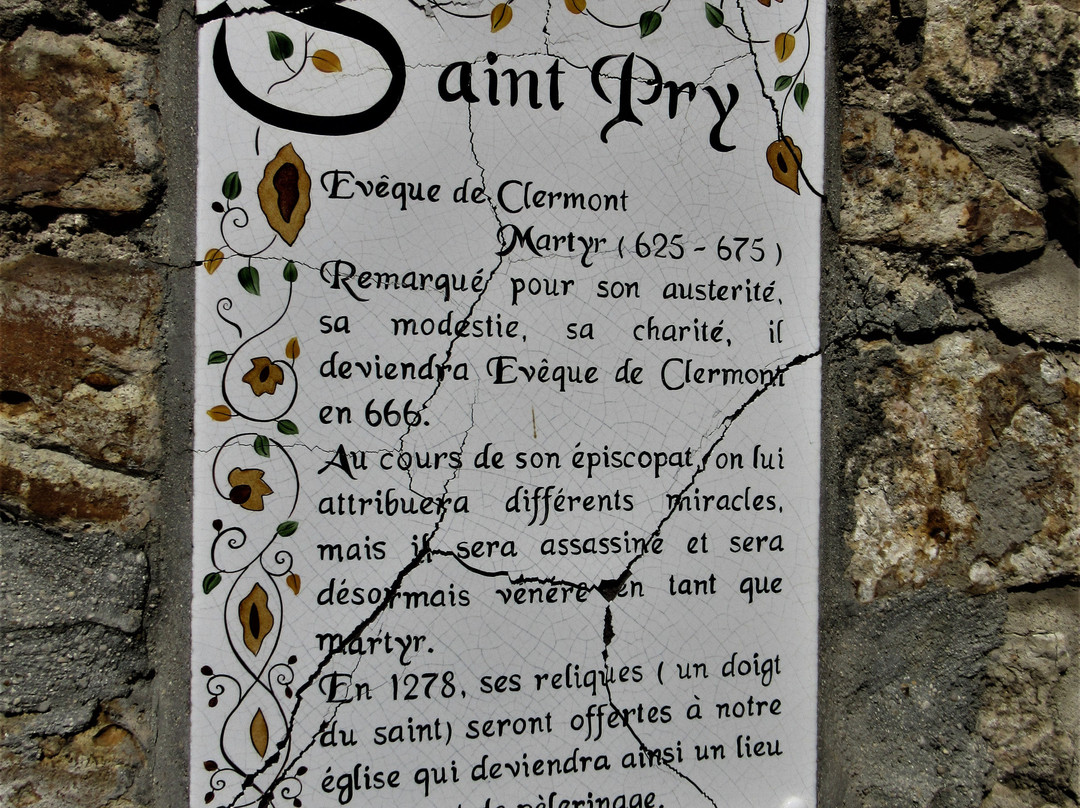 Saint Pry
Evêque de Clermont
Martyr (625 - 675)
Remarqué pour son austerité,
sa modestie, sa charité, il
deviendra Evêque de Clermont
en 666.
Au cours de son épiscopat, on lui
attribuera différents miracles,
mais il sera assassiné et sera
désormais vénéré en tant que
martyr.
En 1278, ses reliques ( un doigt
du saint) seront offertes à notre
église qui deviendra ainsi un lieu
de pèlerinage.